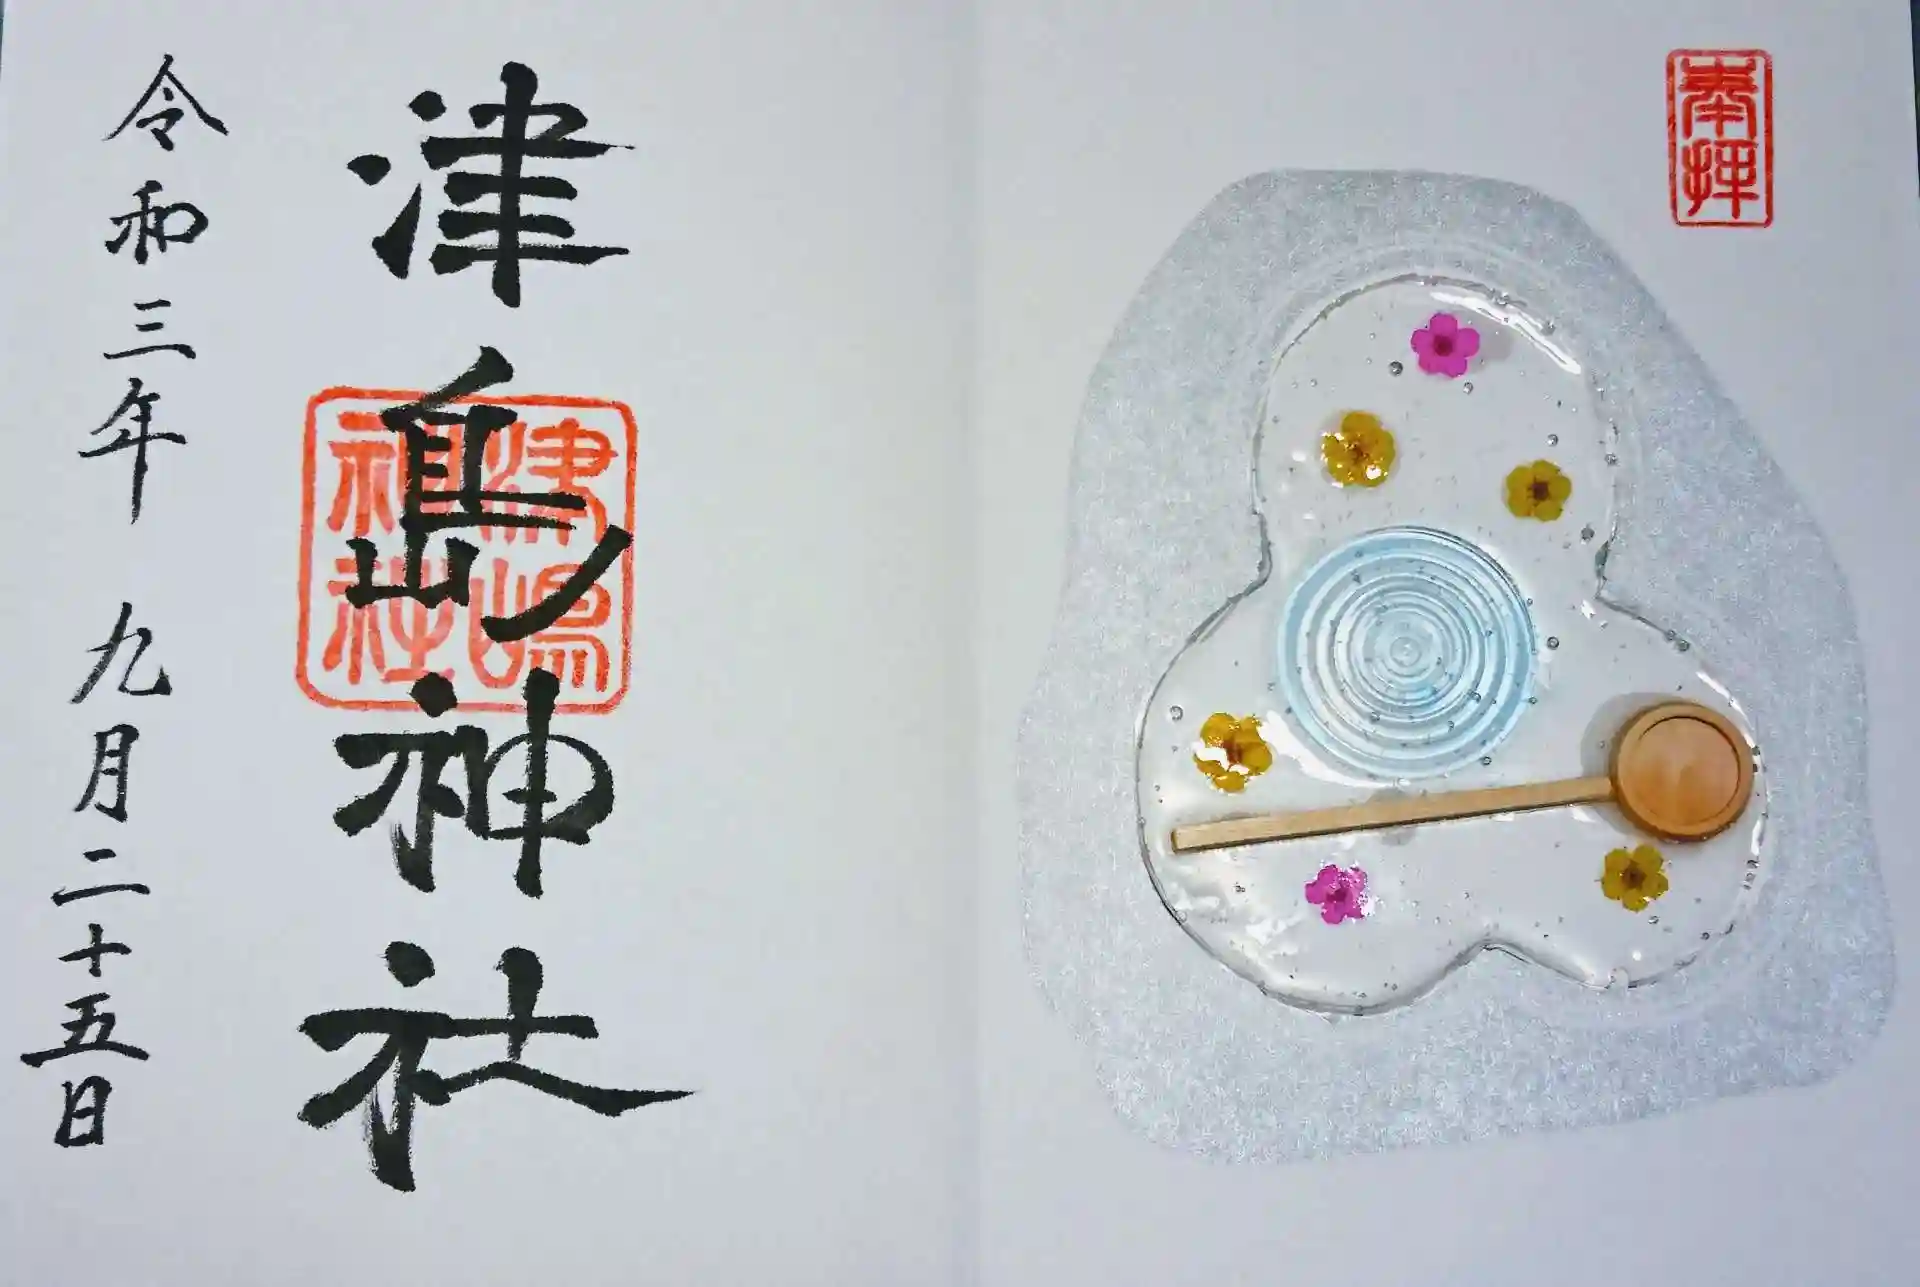 奉拝
津島神社
津嶋
神社
令和三年 九月二十五日